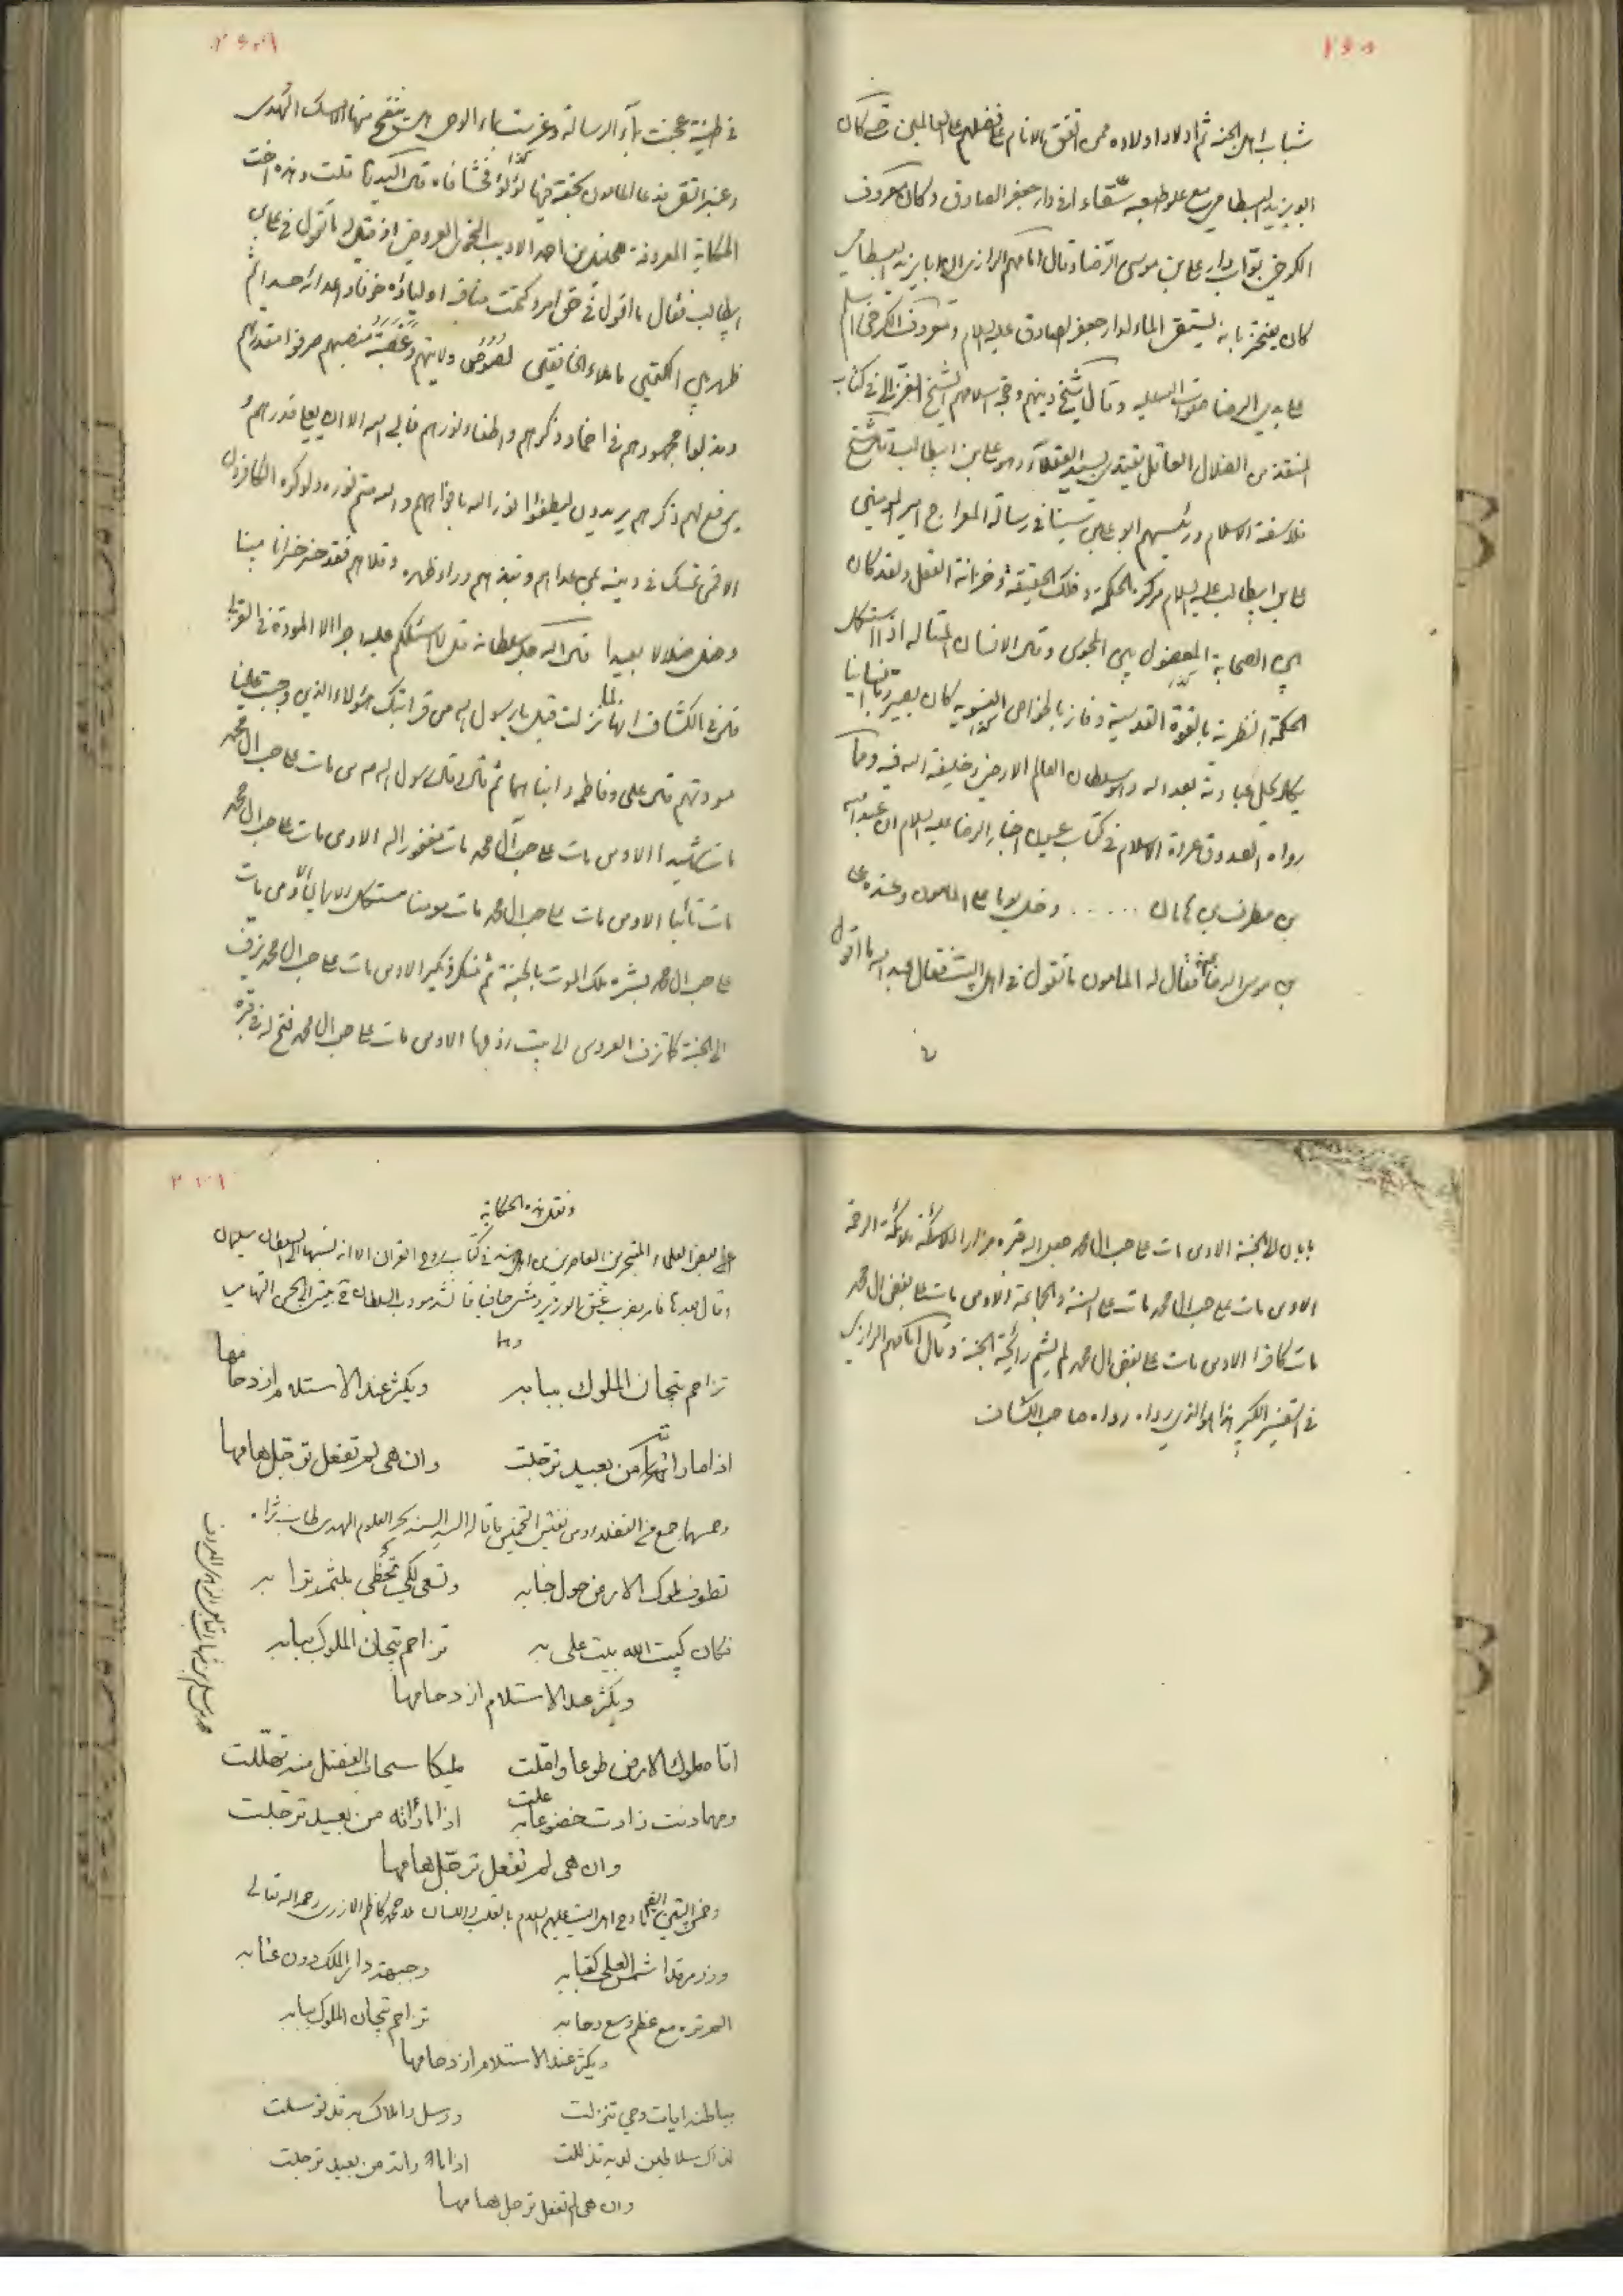 ٢٥٨
شباب اهل الجنة ثم اولاد اولاده ممن اتفق الانام على فضلهم على العالمين حتى كان
ابو يزيد البسطامي مع علو طبعه سقاء في دار جعفر الصادق وكان معروف
الكرخي بواب دار علي بن موسى الرضا وقال امامهم الرازي ان ابا يزيد البسطامي
كان يفتخر بانه يستقي الماء لدار جعفر الصادق عليه السلام ومعروف الكرخي اسلم
على يدي الرضا صلوات الله عليه وقال شيخ دينهم وحجة اسلامهم الشيخ الغزالي في كتاب
المنقذ من الضلال العاقل يقتدي بسيد العقلاء وهو علي بن ابيطالب وقال شيخ
فلاسفة الاسلام ورئيسهم ابو علي بن سينا في رسالة المعراج امير المؤمنين
علي بن ابيطالب عليه السلام مركز الحكمة وفلك الحقيقة وخزانة العقل ولقد كان
بين الصحابة كالمعقول بين المحسوس وقال الانسان المتاله اذا استكمل
الحكمة النظرية بالقوة القدسية وفاز بالخواص النبوية كان يصير ربا انسانيا
يكاد يحل عبادته بعد الله وهو سلطان العالم الارضي وخليفة الله فيه ومما
رواه الصدوق عروة الاسلام في كتاب عيون اخبار الرضا عليه السلام ان عبد الله
بن مطرف بن هامان ...... دخل يوما على المامون وعنده علي
بن موسى الرضا فقال له المامون ما تقول في اهل البيت فقال عبد الله ما اقول
في طينة عجنت بماء الرسالة وغرست بماء الوحي هل ينفح منها الا مسك الهدى
وعنبر التقى فدعا المامون بحقة فيها لؤلؤ فحشا فاه
الحكاية المعروفة لخليل بن احمد الاديب النحوي العروضي اذ قيل له ما تقول في علي بن
ابيطالب فقال ما اقول في حق امرء كتمت مناقبه اولياؤه خوفا واعدائه حسدا ثم
ظهر من بين الكتمين ما ملاء الخافقين لصوص ولايتهم وغصبة منصبهم صرفوا مقدرتهم
وبذلوا مجهودهم في اخماد ذكرهم واطفاء نورهم فابى الله الا ان يعلي قدرهم
يرفع لهم ذكرهم يريدون ليطفؤا نور الله بافواههم والله متم نوره ولو كره الكافرون
الا فمن تمسك في دينه بمن عداهم ونبذهم وراء ظهره وقلاهم فقد خسر خسرانا مبينا
وضل ضلالا بعيدا قال الله جل سلطانه قل لا اسئلكم عليه اجرا الا المودة في القربى
قال في الكشاف انها لما نزلت قيل يا رسول الله من قرابتك هؤلاء الذين وجبت علينا
مودتهم قال علي وفاطمة وابناهما ثم قال وقال رسول الله ص من مات على حب ال محمد
مات شهيدا الا ومن مات على حب آل محمد مات مغفورا له الا ومن مات على حب ال محمد
مات تائبا الا ومن مات على حب ال محمد مات مومنا مستكمل الايمان الا ومن مات
على حب ال محمد بشره ملك الموت بالجنة ثم منكر ونكير الا ومن مات على حب ال محمد يزف
الى الجنة كما تزف العروس الى بيت زوجها الا ومن مات على حب ال محمد فتح له في قبره
بابان الى الجنة الا ومن مات على حب ال محمد جعل الله قبره مزار الملائكة ملائكة الرحمة
الا ومن مات على حب ال محمد مات على السنة والجماعة الا ومن مات على بغض ال محمد
مات كافرا الا ومن مات على بغض ال محمد لم يشم رائحة الجنة وقال امامهم الرازي
في التفسير الكبير هذا هو الذي رواه صاحب الكشاف
ونقل هذه الحكاية
بعض العلماء المتبحرين المعاصرين في كتاب الا انه نسبها الى السلطان سليمان
تزاحم تيجان الملوك ببابه ويكثر عند الاستلام ازدحامها
اذا ما راته من بعيد ترجلت وان هى لم تفعل ترجل هامها
تطوف ملوك الارض حول جنابه وتسعى لكي تحظى بلثم ترابه
فكان كبيت الله بيت على به تزاحم تيجان الملوك ببابه
ويكثر عند الاستلام ازدحامها
اتاه ملوك الارض طوعا واملت مليكا سحاب الفضل منه تهللت
ومهما دنت زادت خضوعا به علت اذا ما رأته من بعيد ترجلت
وان هى لم تفعل ترجل هامها
مادح اهل البيت عليهم السلام بالقلب واللسان ملا محمد كاظم الازري رحمه الله تعالى
وزر مرقدا شمس العلى كقبابه وجبهة دار الملك دون عتابه
الم تره مع عظم وسع رحابه تزاحم تيجان الملوك ببابه
ويكثر عند الاستلام ازدحامها
بباطنه ايات وحي تنزلت ورسل واملاك به قد توسلت
لذاك سلاطين لديه تذللت اذا ما راته من بعيد ترجلت
وان هى لم تفعل ترجل هامها